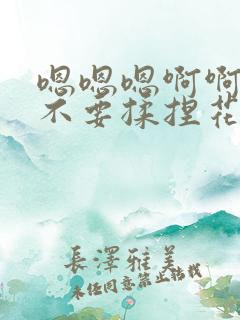 嗯嗯嗯啊啊
不要揉捏花
長澤雅美
未任同意禁止轉載